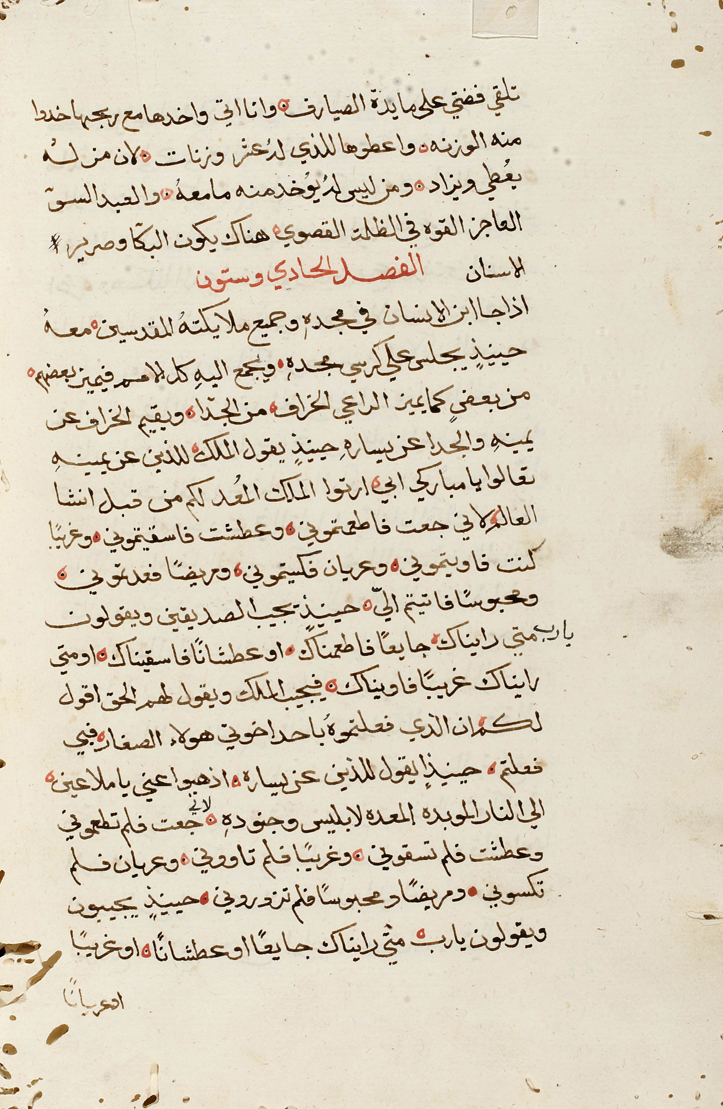 تلقي فضتي علي مايدة الصيارف وانا اتي واخدها مع ربحها خدوا
منه الوزنه واعطوها للذي لهُ عشر وزنات لان من لهُ
يعُطي ويزاد ومن ليس لهُ يوُخد منه مامعهُ والعبد السوّ
العاجز القوه في الظلمة القصوي هناك يكون البكا وصرير
الاسنان الفصل الحادي وستون
اذا جا ابن الانسان في مجدهِ وجميع ملايكتهُ المقدسين معهُ
حينيذٍ يجلس علي كرسي مجدهِ ويجمع اليهِ كل الامم فيميز بعضهم
من بعضٍ كما يميز الراعي الخراف من الجدا ويقيم الخراف عن
يمينهِ والجدا عن يسارهِ حينيذٍ يقول الملك للذين عن يمينهِ
تعالوا يا مباركي ابي ارتوا الملك المعُد لكم من قبل انشا
العالم لاني جعت فاطعمتموني وعطشت فاسقيتموني وغريبًا
كنت فاويتموني وعريان فكسيتموني ومريضًا فعدتموني
ومحبوسًا فاتيتم اليّ حينيذٍ يجيب الصديقين ويقولون
يارب متي رايناك جايعًا فاطعمناك او عطشانًا فاسقيناك او متي
رايناك غريبًا فاويناك فيجيب الملك ويقول لهم الحق اقول
لكم ان الذي فعلتموهُ باحد اخوتي هولاء الصغار فبي
فعلتم حينيذٍ يقول للذين عن يساره اذهبوا عني يا ملاعين
الي النار الموبده المعده لابليس وجنودهِ لاني جعت فلم تطعموني
وعطشت فلم تسقوني وغريبًا فلم تاووني وعريان فلم
تكسوني ومريضًا ومحبوسًا فلم تزوروني حينيذٍ يجيبون
ويقولون يارب متي رايناك جايعًا او عطشانًا او غريبًا
او عريانًا